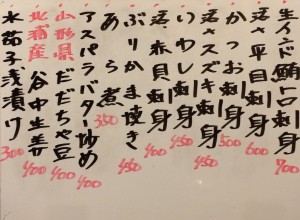 生インド鮪トロ刺身 700
活〆平目刺身 600
かつお刺身 500
活〆スズキ刺身 450
いわし刺身 450
活赤貝刺身 400
ぶりかま焼き 450
あら煮 350
アスパラバター炒め 400
山形県だだちゃ豆 400
北浦産谷中生姜 400
水茄子浅漬け 300